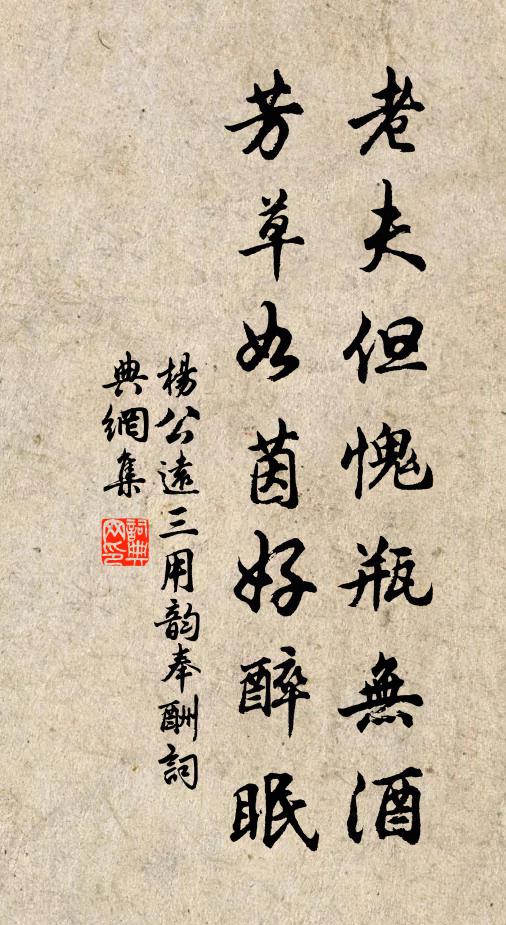 老夫但愧瓶無酒
芳草如茵好醉眠
楊公遠三用韵奉酬詞
典網集
詞典网印